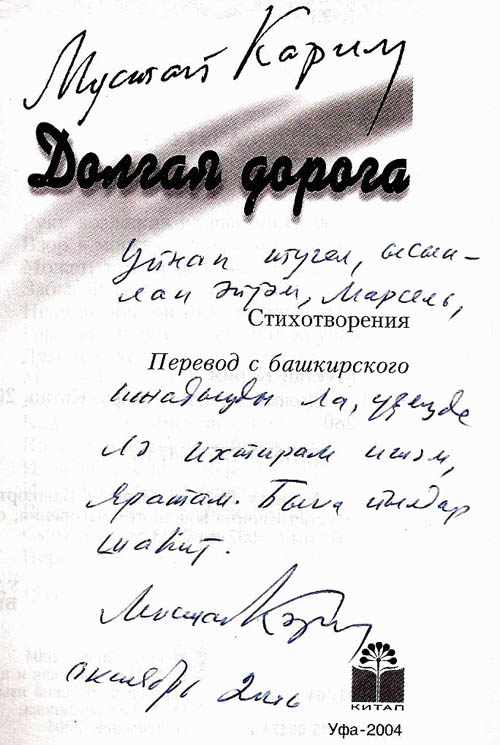 Мустай Карим
Долгая дорога
Уйнап түгел, ысын-
лап әйтәм, Марсель,
Стихотворения
Перевод с башкирского
ижадыңды ла, үҙеңде
лә ихтирам итәм,
яратам. Быға йылдар
шаһит.
Мостай Кәрим
октябрь 2004
КИТАП
Уфа-2004